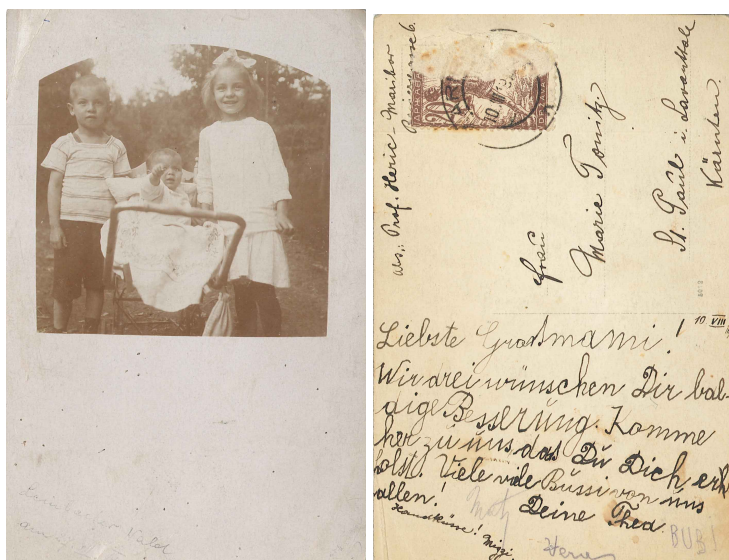 am
Prof. Heric - Maribor
Frau
Marie Tonitz
St. Paul i. Lavanttale
Kärnten.
20
10 VIII
Liebste Grossmami!
Wir drei wünschen Dir bal-
dige Besserung. Komme
her zu uns das Du Dich erh
olst. Viele viele Bussi von uns
allen!
Deine Thea
Handküsse! Mizzi
BUBI